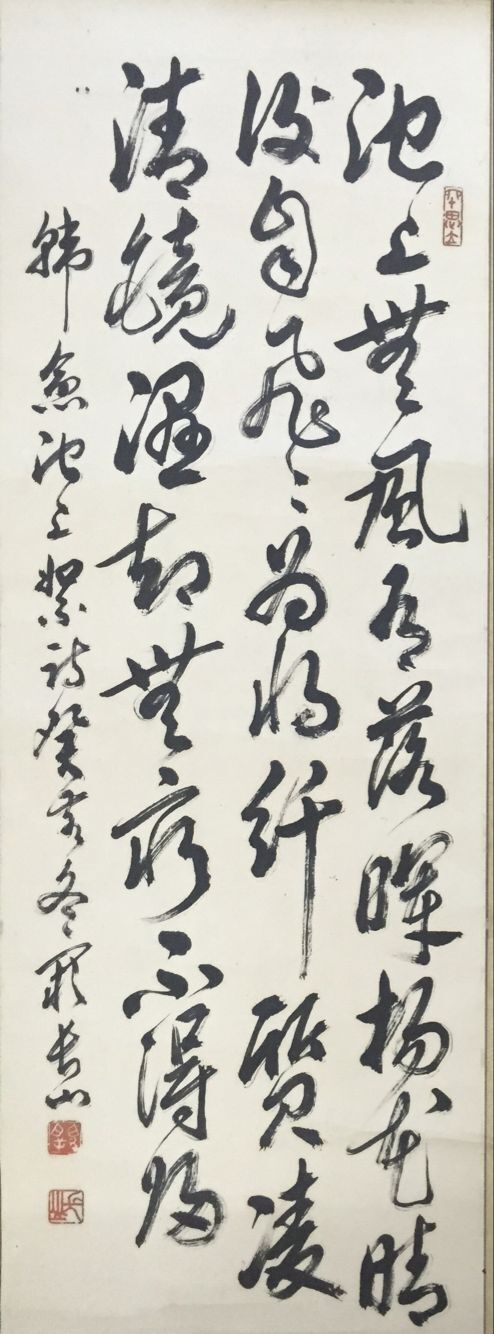 池上無風有落暉楊花晴
後自飛〻為將纤質凌
清鏡濕却無窮不得歸
韓愈池上絮詩癸亥冬長山